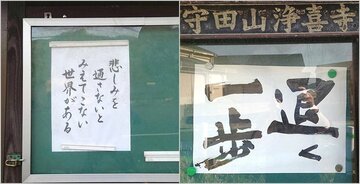 悲しみを
通さないと
みえてこない
世界がある
守田山浄喜寺
一歩